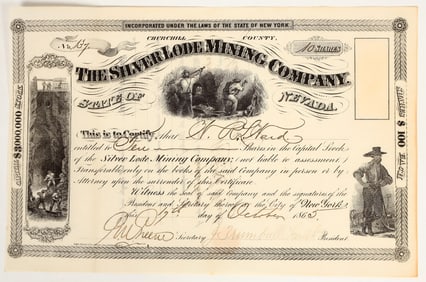 INCORPORATED UNDER THE LAWS OF THE STATE OF NEW YORK
CHURCHILL COUNTY,
No. 157
10 SHARES
THE SILVER LODE MINING COMPANY,
STATE OF NEVADA.
CAPITAL $3,000,000 STOCK
SHARES $100 EACH
This is to Certify, that
Ward
entitled to Ten Shares in the Capital Stock
of the Silver Lode Mining Company, (not liable to assessment)
Transferable only on the books of the said Company in person or by
Attorney upon the surrender of this Certificate.
Witness the Seal of said Company and the signatures of the
President and Secretary thereof in the City of New York
this day of October 1865.
Secretary President